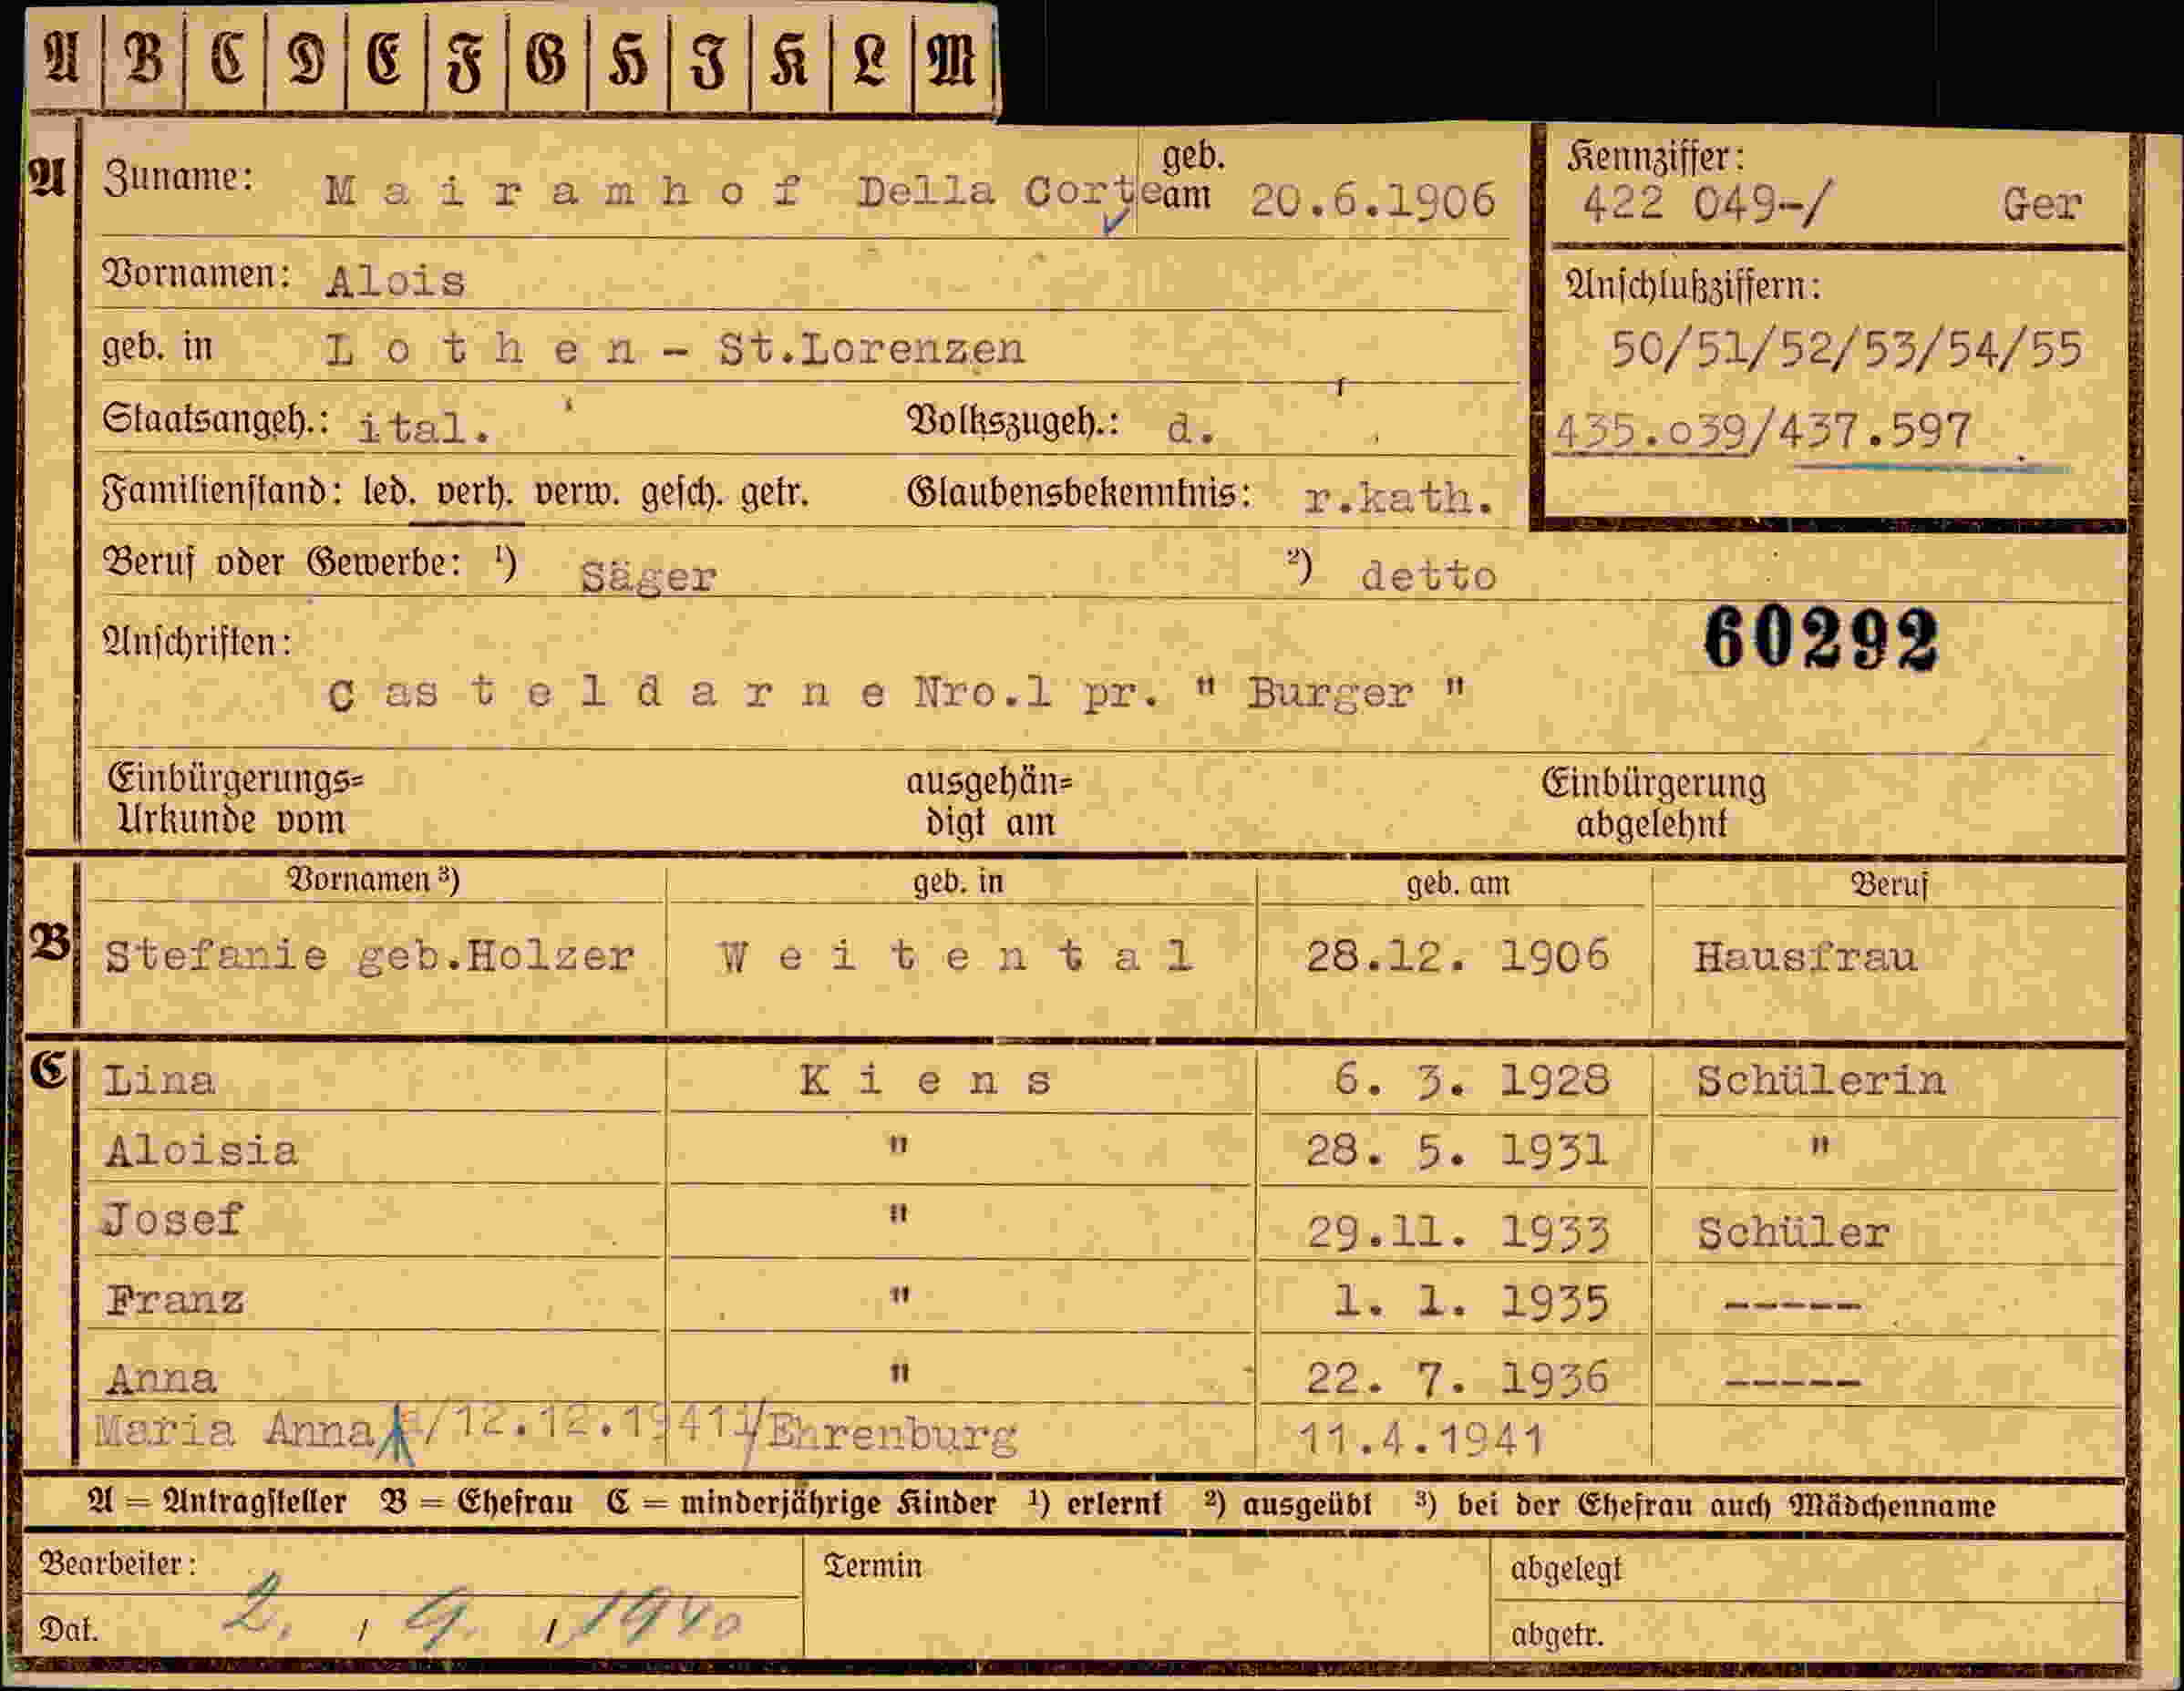 A B C D E F G H I K L M
A Zuname: Mairamhof Della Corte geb. am 20.6.1906
Kennziffer:
422 049-/ Ger
Vornamen: Alois
Anschlußziffern:
geb. in Lothen - St.Lorenzen
50/51/52/53/54/55
Staatsangeh.: ital. Volkszugeh.: d.
435.039/437.597
Familienstand: led. verh. verw. gesch. getr. Glaubensbekenntnis: r.kath.
Beruf oder Gewerbe: ¹) Säger ²) detto
Anschriften:
60292
Casteldarne Nro.1 pr. " Burger "
Einbürgerungs= ausgehän= Einbürgerung
Urkunde vom digt am abgelehnt
Vornamen ³) geb. in geb. am Beruf
B Stefanie geb.Holzer Weitental 28.12. 1906 Hausfrau
C Lina Kiens 6. 3. 1928 Schülerin
Aloisia " 28. 5. 1931 "
Josef " 29.11. 1933 Schüler
Franz " 1. 1. 1935 -----
Anna " 22. 7. 1936 -----
Maria Anna /12.12.1941/Ehrenburg 11.4.1941
A = Antragsteller B = Ehefrau C = minderjährige Kinder ¹) erlernt ²) ausgeübt ³) bei der Ehefrau auch Mädchenname
Bearbeiter: Termin abgelegt
Dat. 2. / 9. / 1940 abgetr.